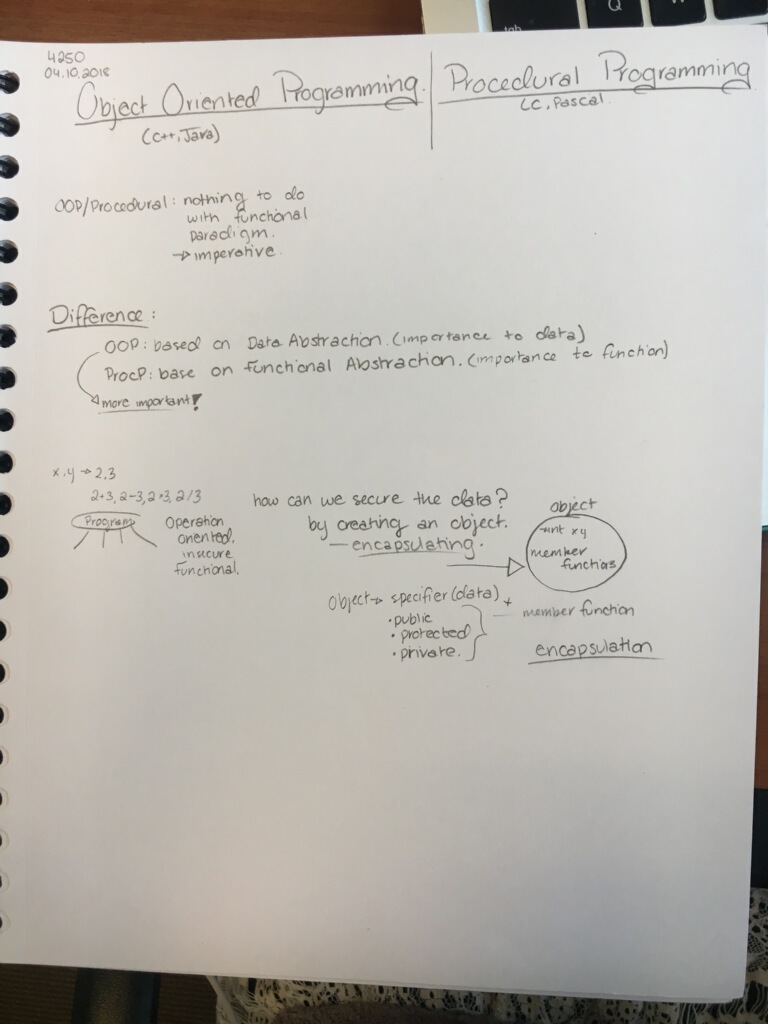 4250
04.10.2018
Object Oriented Programming.
(C++, Java)
Procedural Programming
C, Pascal.
OOP/Procedural: nothing to do
with functional
paradigm.
→ imperative.
Difference:
OOP: based on Data Abstraction. (importance to data)
ProcP: base on functional Abstraction. (importance to function)
more important!
x,y → 2,3
2+3, 2-3, 2*3, 2/3
Program
Operation
oriented.
insecure
functional.
how can we secure the data?
by creating an object.
— encapsulating.
object
int x,y
member
functions
Object → specifier (data) +
member function
• public
• protected
• private.
encapsulation
tab
Q